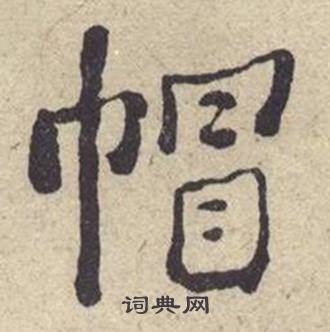 帽
词典网